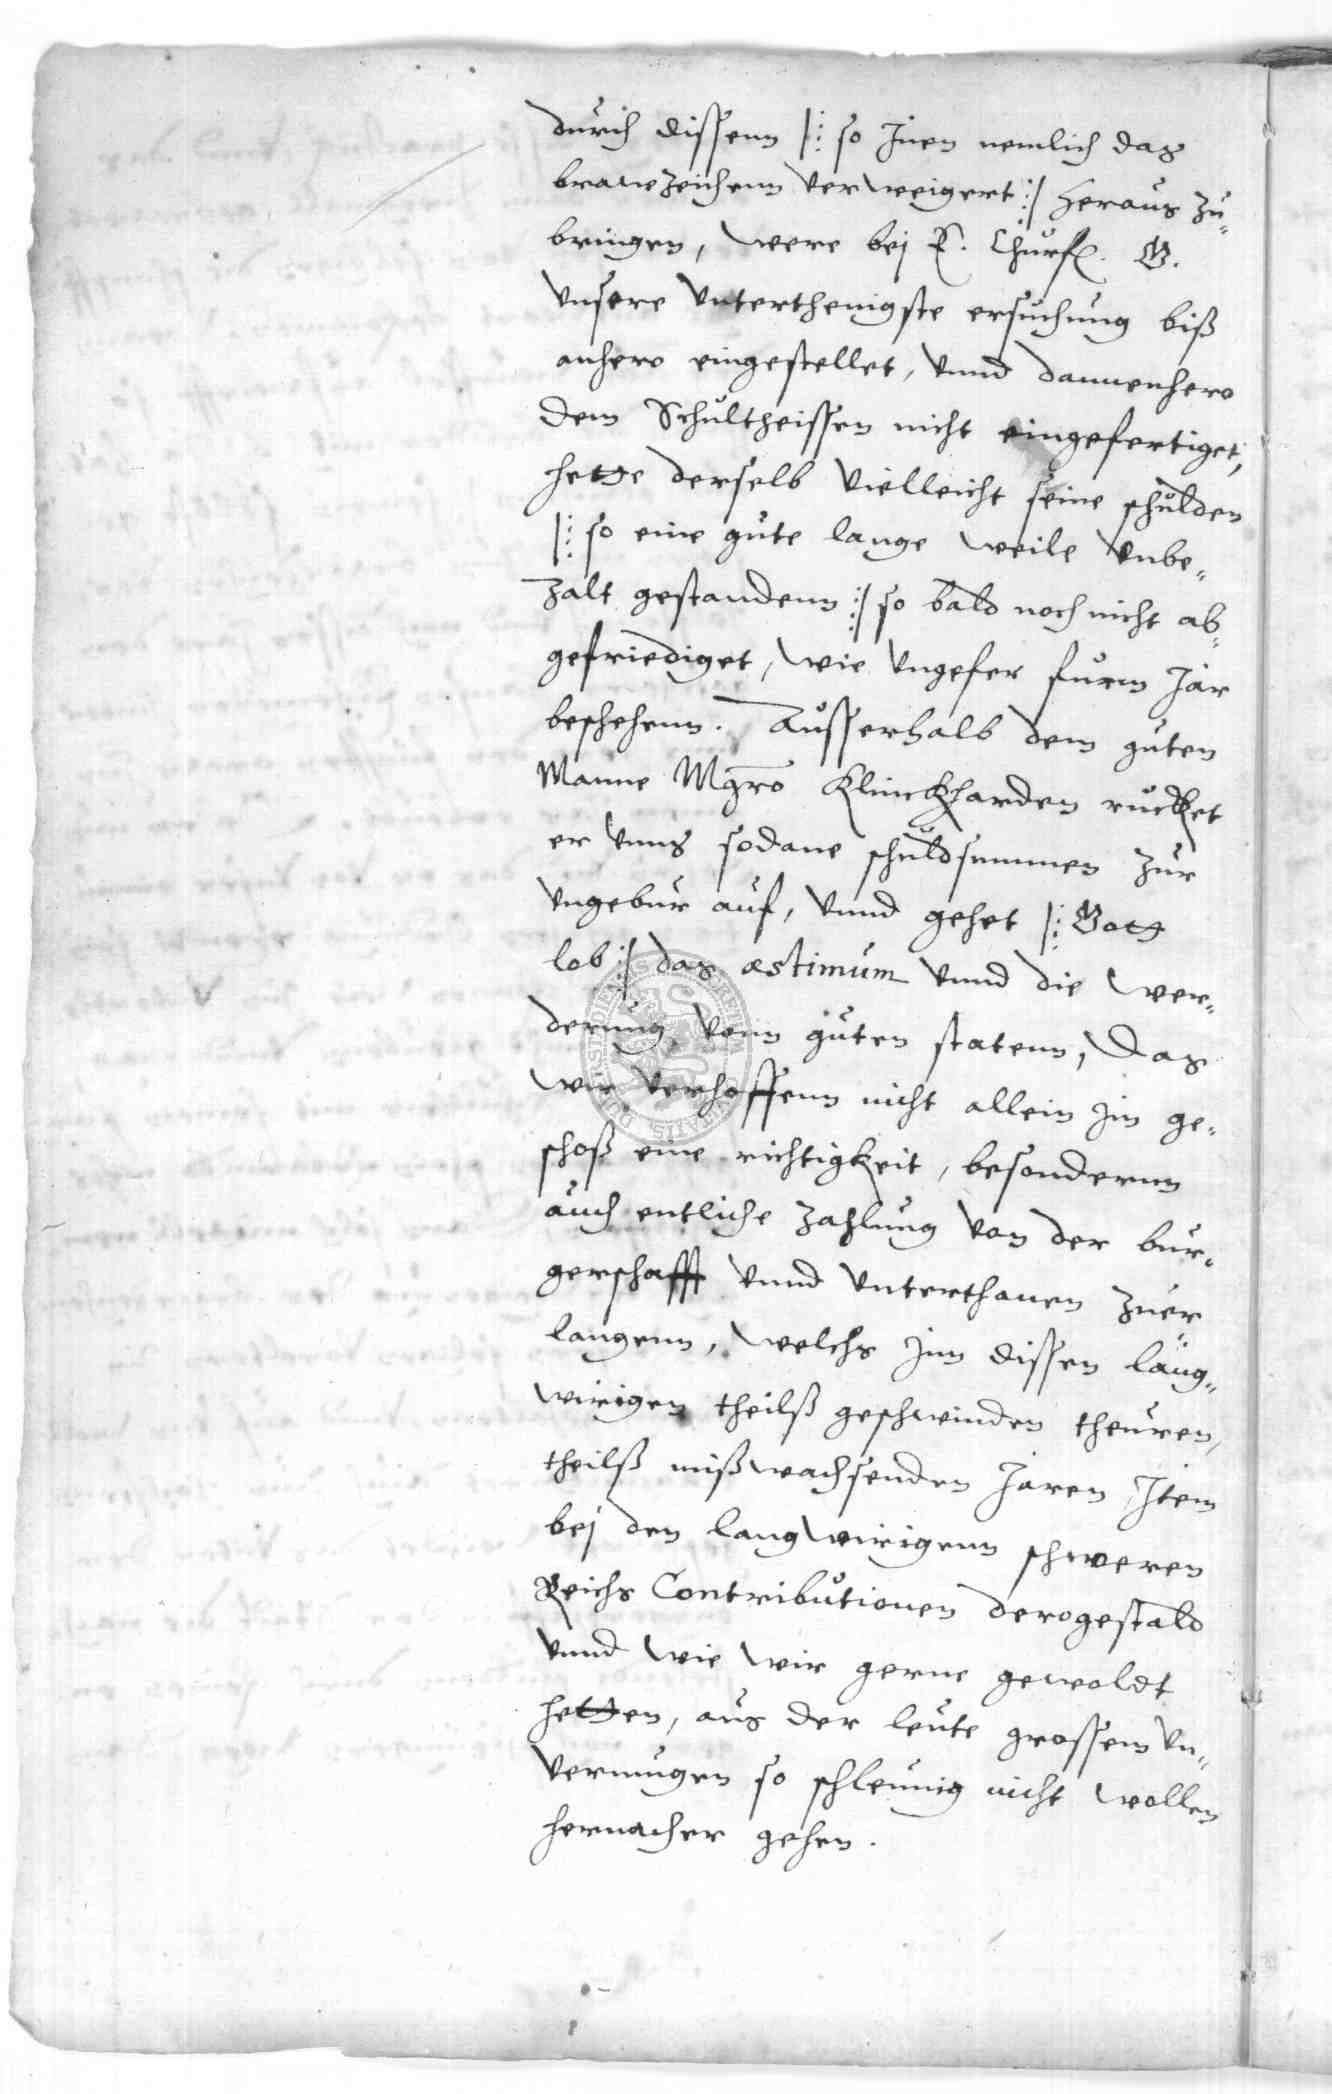 durch dissenn |: so Jnen nemlich das
brauezeichenn verweigert :| heraus zu-
bringen, were bej E. Churf. G.
vnsere vnterthenigste ersuchung biß
anhero eingestellet, vnnd dannenhero
dem Schultheissen nicht eingefertiget,
hette derselb vielleicht seine schulden
|: so eine gute lange weile vnbe-
zalt gestandenn :| so bald noch nicht ab-
gefriediget, wie vngefer furm Jar
beschehenn. Ausserhalb dem guten
Manne Mgro Klinckharden rucket
er vnns sodane schuldsummen zur
vngebur auf, vnnd gehet |: Gott
lob :| das æstimum vnnd die wer-
derung vonn guten statenn, das
wir verhoffenn nicht allein im ge-
schoß eine richtigkeit, besondernn
auch entliche zahlung von der bur-
gerschafft vnnd vnterthanen zuer
langenn, welchs jnn dissen lang-
wirigen theilß geschwinden theuren,
theilß mißwachsenden Jaren Jtem
bej den langwirigenn schweren
Reichs Contributionen derogestald
vnnd wie wir gerne gewoldt
hetten, aus der leute grossem vn-
vermugen so schleunig nicht wollen
hernacher gehen.